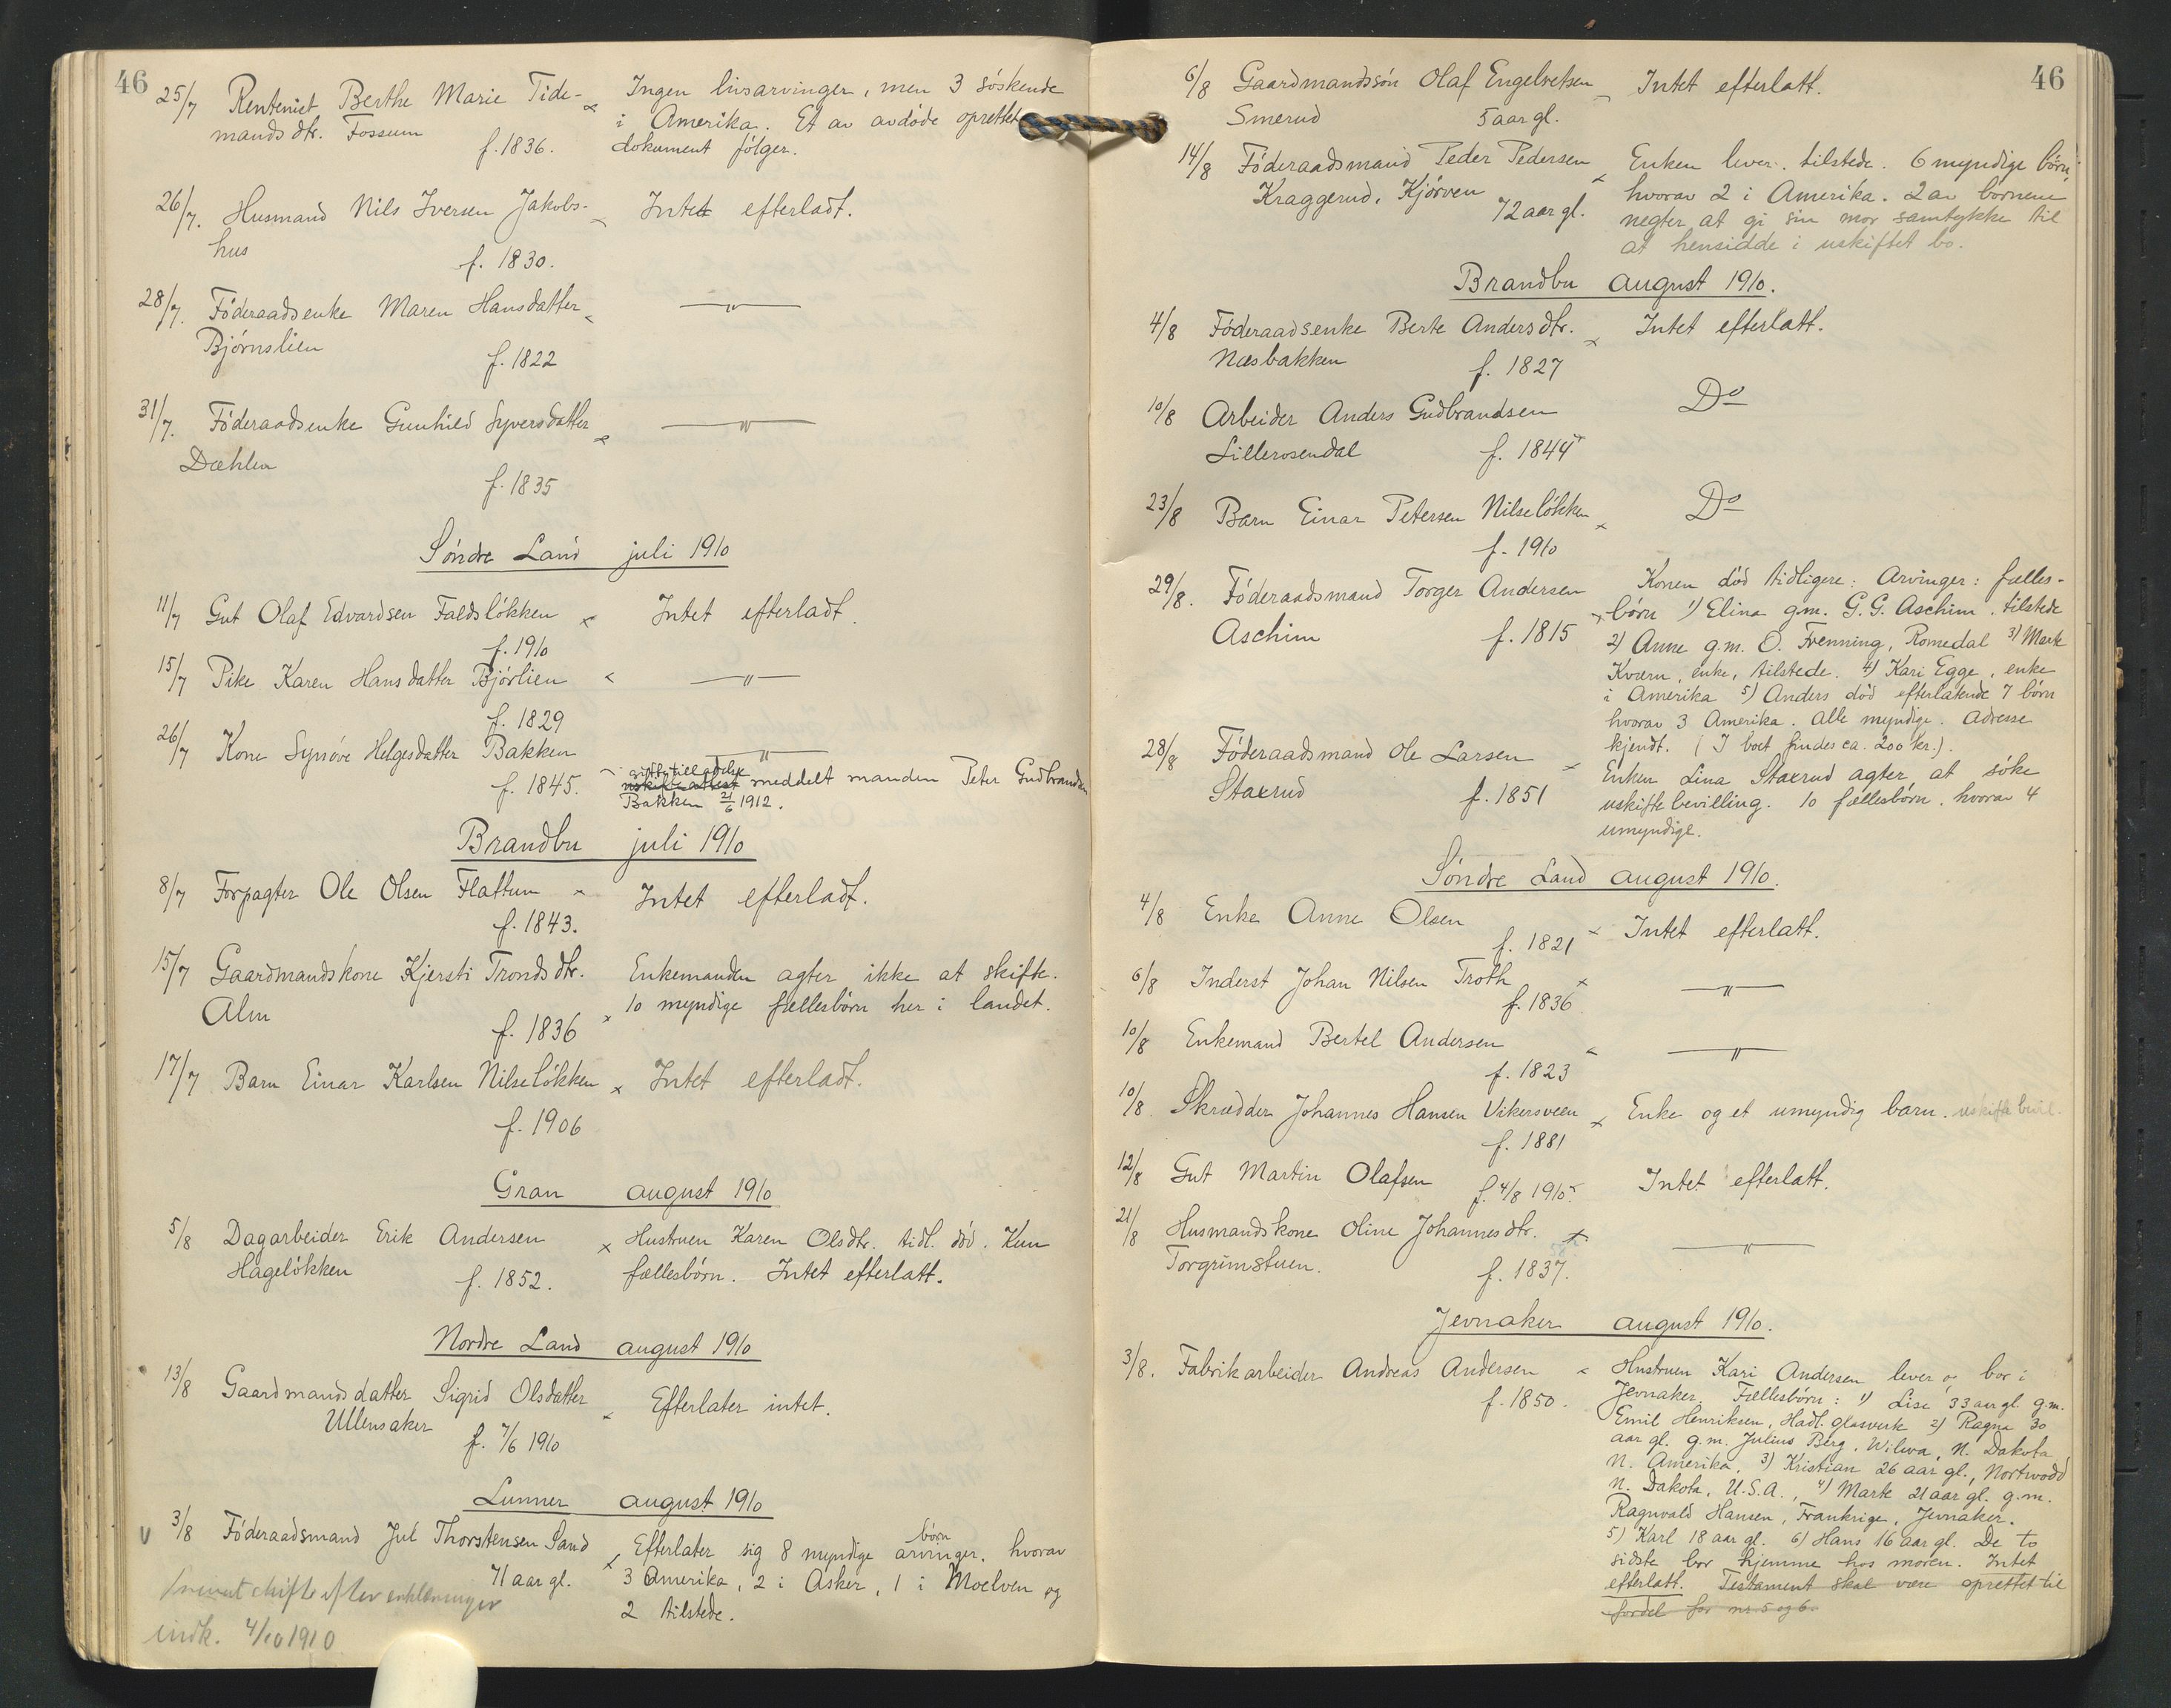 46
25/7 Renteniet Berthe Marie Tide- × Ingen livsarvinger, men 3 søskende
mandsdtr. Fossum f. 1836. i Amerika. Et av avdøde oprettet
dokument følger.
26/7. Husmand Nils Iversen Jakobs- Intet efterladt.
hus f. 1830.
28/7. Føderaadsenke Maren Hansdatter — " —
Bjørnslien f. 1822
31/7. Føderaadsenke Gunhild Syversdatter — " —
Dæhlen f. 1835
Søndre Land juli 1910
11/7 Gut Olaf Edvardsen Faldsløkken × Intet efterladt.
f. 1910
15/7 Pike Karen Hansdatter Bjørlien — " —
f. 1829
26/7 Kone Synøve Helgesdatter Bakken — " —
f. 1845. giftetilladelse
uskifteattest meddelt manden Peter Gudbrandsen
Bakken 21/6 1912.
Brandbu juli 1910
8/7 Forpagter Ole Olsen Flattum × Intet efterladt.
f. 1843.
15/7 Gaardmandskone Kjersti Trondsdtr. Enkemanden agter ikke at skifte.
Alm f. 1836 × 10 myndige fællesbørn her i landet.
17/7 Barn Einar Karlsen Nilseløkken × Intet efterladt.
f. 1906
Gran august 1910
5/8 Dagarbeider Erik Andersen × Hustruen Karen Olsdtr. tidl. død. Kun
Hageløkken f. 1852. fællesbørn. Intet efterlatt.
Nordre Land august 1910
13/8 Gaardmandsdatter Sigrid Olsdatter × Efterlater intet.
Ullensaker f. 7/6 1910
Lunner august 1910
v 3/8 Føderaadsmand Jul Thorstensen Sand × Efterlater sig 8 myndige arvinger, hvorav
børn
71 aar gl. 3 Amerika, 2 i Asker, 1 i Moelven og
2 tilstede.
skifte efter erklæringer
indk. 4/10 1910
46
6/8 Gaardmandssøn Olaf Engelretsen Intet efterlatt.
Smerud 5 aar gl.
14/8 Føderaadsmand Peder Pedersen × Enken lever. tilstede. 6 myndige børn,
Kraggerud, Kjørven 72 aar gl. hvorav 2 i Amerika. 2 av børnene
negter at gi sin mor samtykke til
at hensidde i uskiftet bo.
Brandbu august 1910.
4/8 Føderaadsenke Berte Andersdtr. × Intet efterlatt.
Næsbakken f. 1827
10/8 Arbeider Anders Gudbrandsen Do
Lillerosendal f. 1844 ×
23/8 Barn Einar Petersen Nilseløkken × Do
f. 1910
29/8. Føderaadsmand Torger Andersen Konen død tidligere: Arvinger: fælles-
Aschim f. 1815 × børn 1) Elina gm. G. G. Aschim. tilstede
2) Anne g.m. O. Frenning, Romedal 3) Marte
Kværn, enke, tilstede. 4) Kari Egge, enke
i Amerika 5) Anders død efterlatende 7 børn
hvorav 3 Amerika. Alle myndige. Adresse
kjendt. (I boet findes ca. 200 kr.).
28/8 Føderaadsmand Ole Larsen × Enken Lina Staxrud agter at søke
Staxrud f. 1851 uskiftebevilling. 10 fællesbørn. hvorav 4
umyndige.
Søndre Land august 1910.
4/8 Enke Anne Olsen × Intet efterlatt.
f. 1821
6/8 Inderst Johan Nilsen Troth × — " —
f. 1836
10/8 Enkemand Bertel Andersen — " —
f. 1823
10/8. Skrædder Johannes Hansen Vikersveen × Enke og et umyndig barn. uskifte bevil.
f. 1881
12/8 Gut Martin Olafsen f. 4/8 1910 × Intet efterlatt.
21/8 Husmandskone Oline Johannesdtr. × — " —
Torgrimstuen. f. 1837.
Jevnaker august 1910.
3/8. Fabrikarbeider Andreas Andersen × Hustruen Kari Andersen lever og bor i
f. 1850. Jevnaker. Fællesbørn: 1) Lise 33 aar gl. g.m.
Emil Henriksen, Hadl. Glasverk 2) Ragna 30
aar gl. g.m. Julius Berg, Wilwa, N. Dakota
N. Amerika, 3) Kristian 26 aar gl., Nortwodd
N. Dakota, U.S.A., 4) Marte 21 aar gl. g.m.
Ragnvald Hansen, Frankrige, Jevnaker.
5) Karl 18 aar gl. 6) Hans 16 aar gl. De to
sidste bor hjemme hos moren. Intet
efterlatt. Testament skal være oprettet til
fordel for nr. 5 og 6.